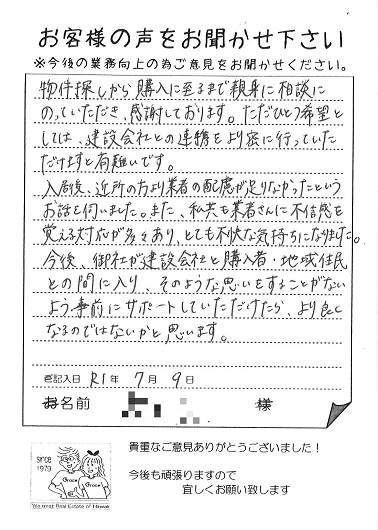 お客様の声をお聞かせ下さい
※今後の業務向上の為ご意見をお聞かせください。
物件探しから購入に至るまで親身に相談に
のっていただき、感謝しております。ただひとつ希望と
しては、建設会社との連携をより密に行っていた
だけますと有難いです。
入居後、近所の方より業者の配慮が足りなかったという
お話を伺いました。また、私共も業者さんに不信感を
覚える対応が多々あり、とても不快な気持ちになりました。
今後、御社が建設会社と購入者・地域住民
との間に入り、そのような思いをすることがない
よう事前にサポートしていただけたら、より良く
なるのではないかと思います。
ご記入日 R1年 7月 9日
お名前 様
since
1979
Grace
Grace
We meet Real Estate of Hawaii
貴重なご意見ありがとうございました！
今後も頑張りますので
宜しくお願い致します